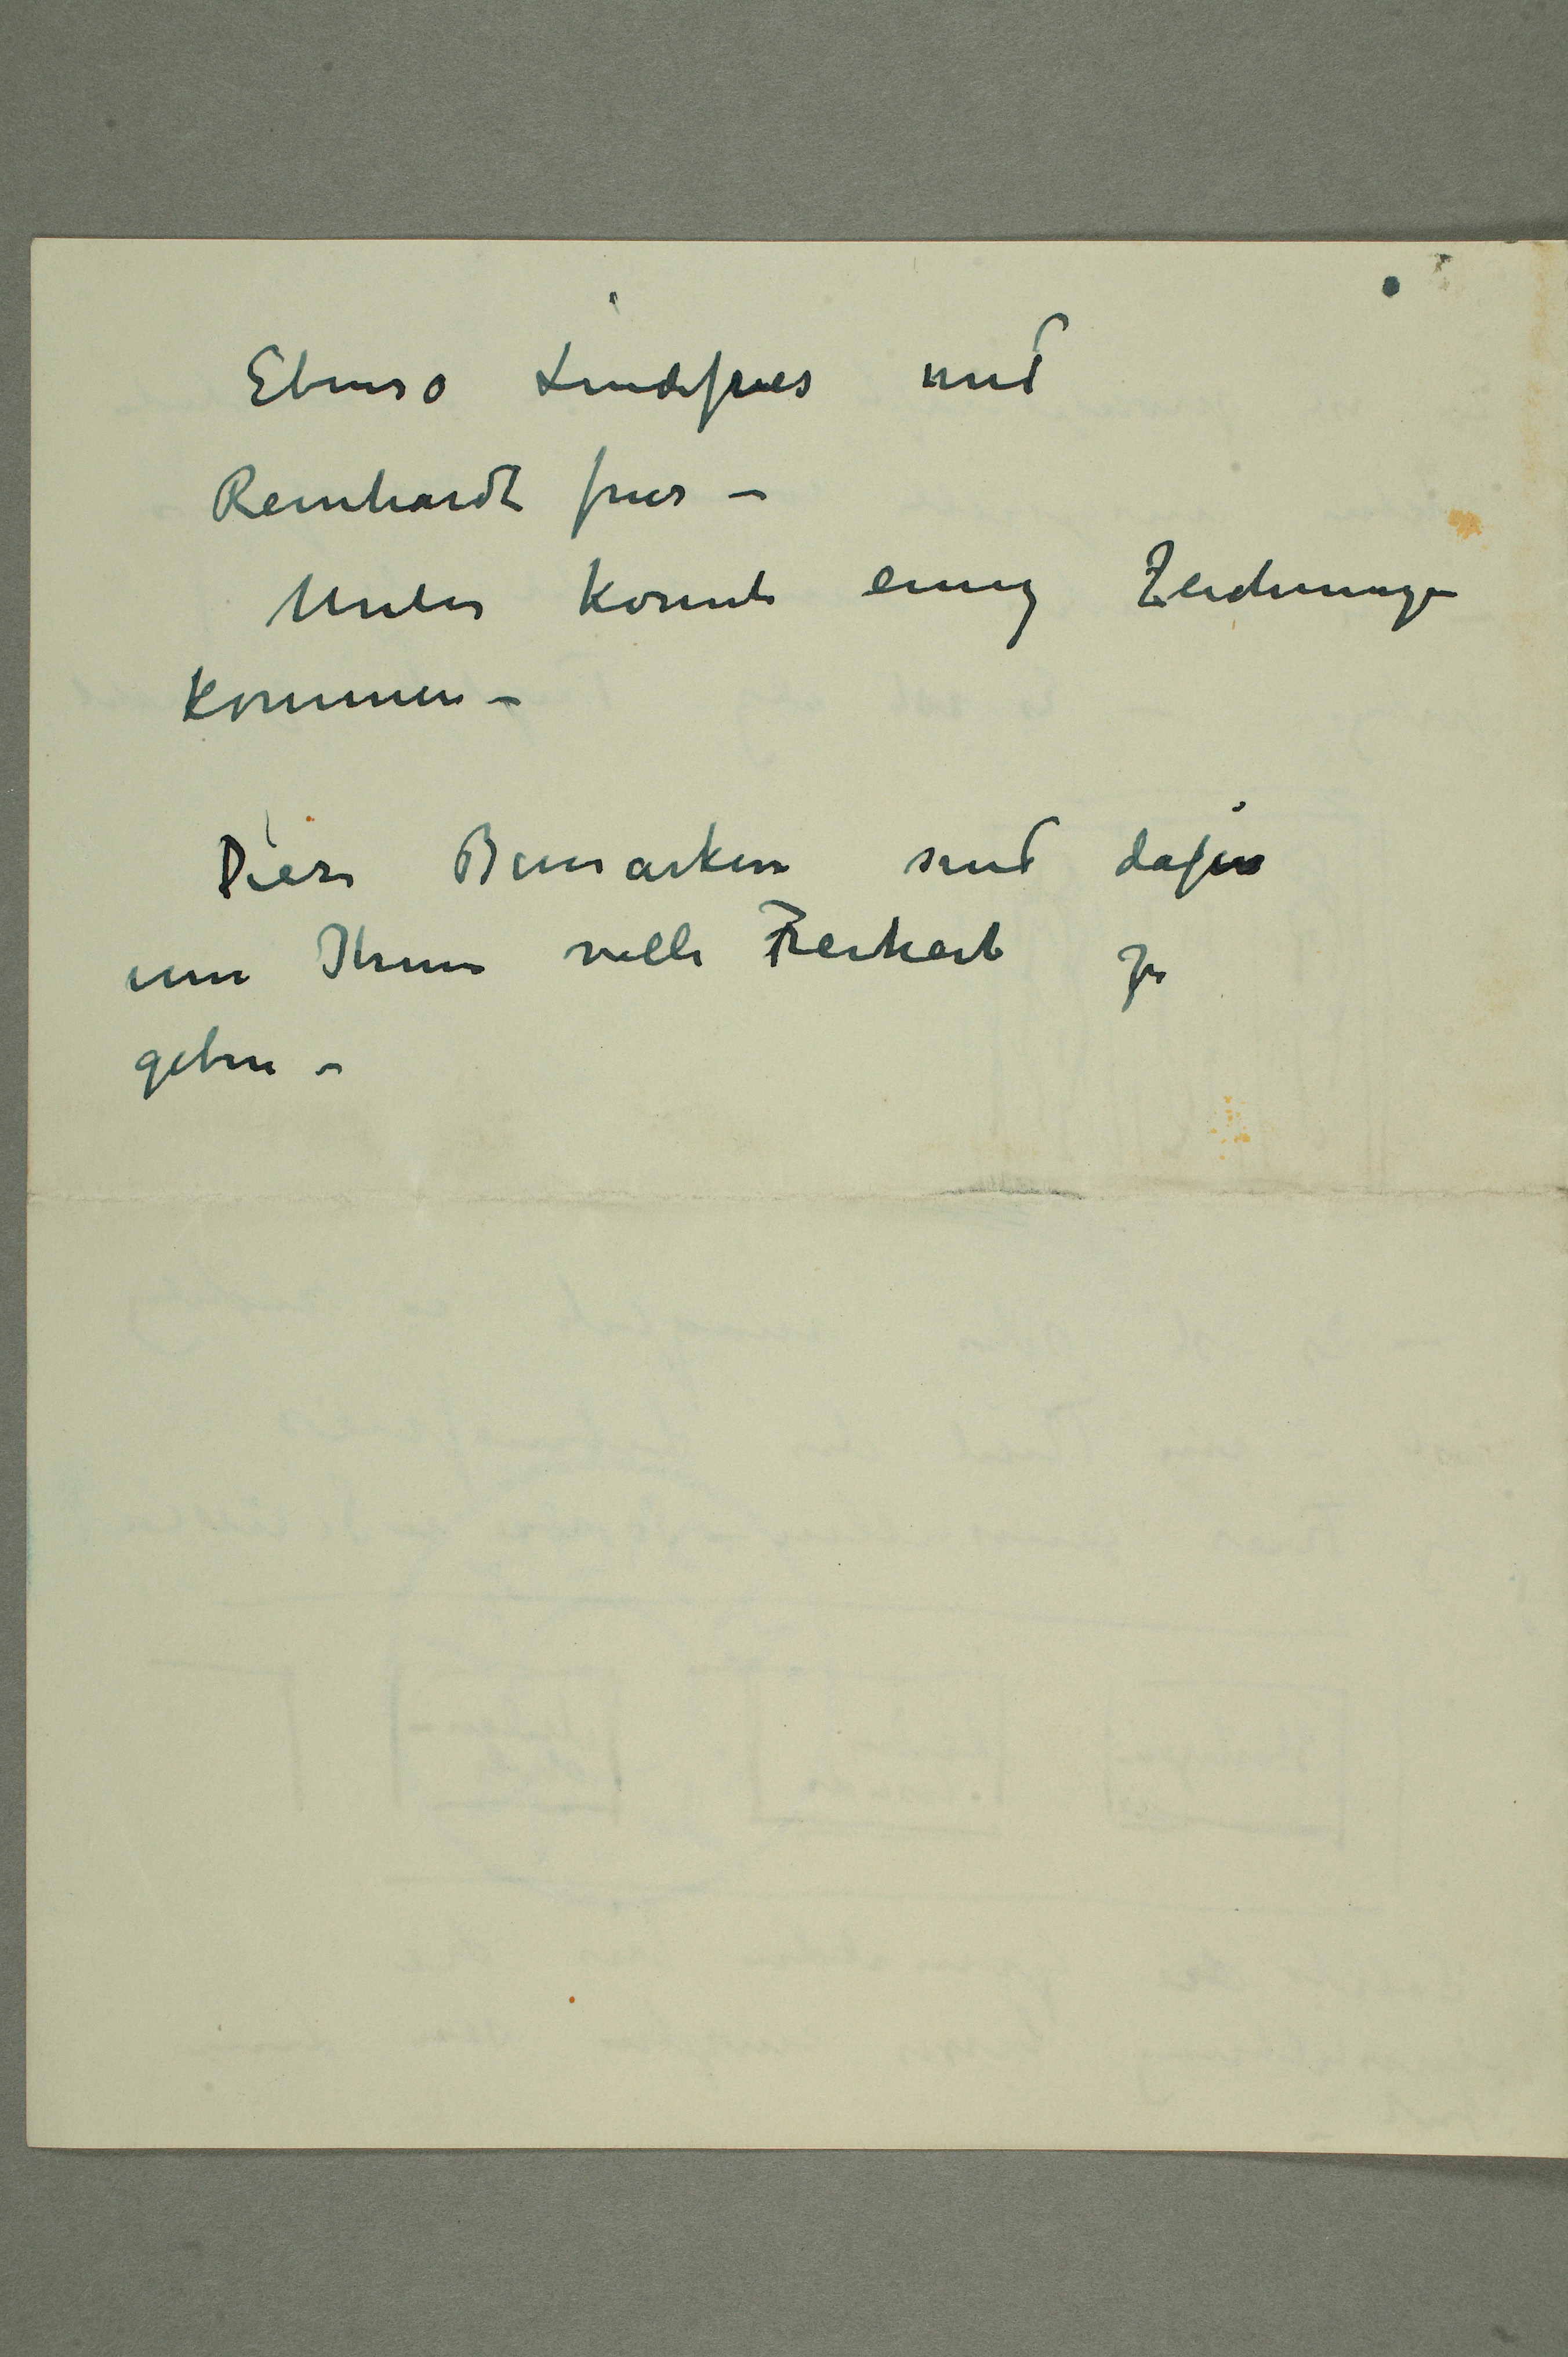 Ebenso Lindefries und
Reinhardt fries –
Unten konnte einig Zeichnungen
kommen –
Diese Bemærken sind dafür
um Ihnen volle Freiheit zu
geben –